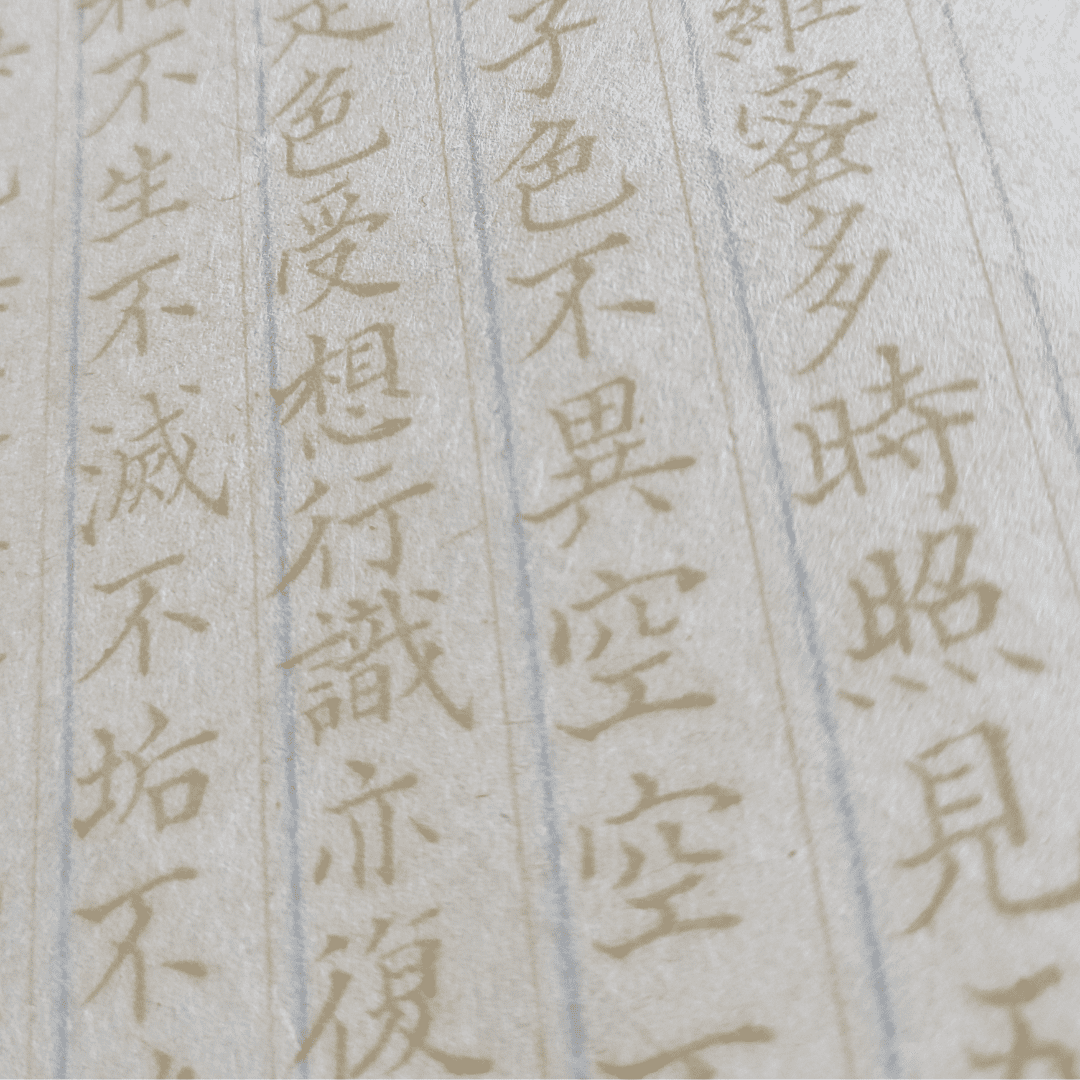 蜜多時照見五
子色不異空空不
是色受想行識亦復
不生不滅不垢不